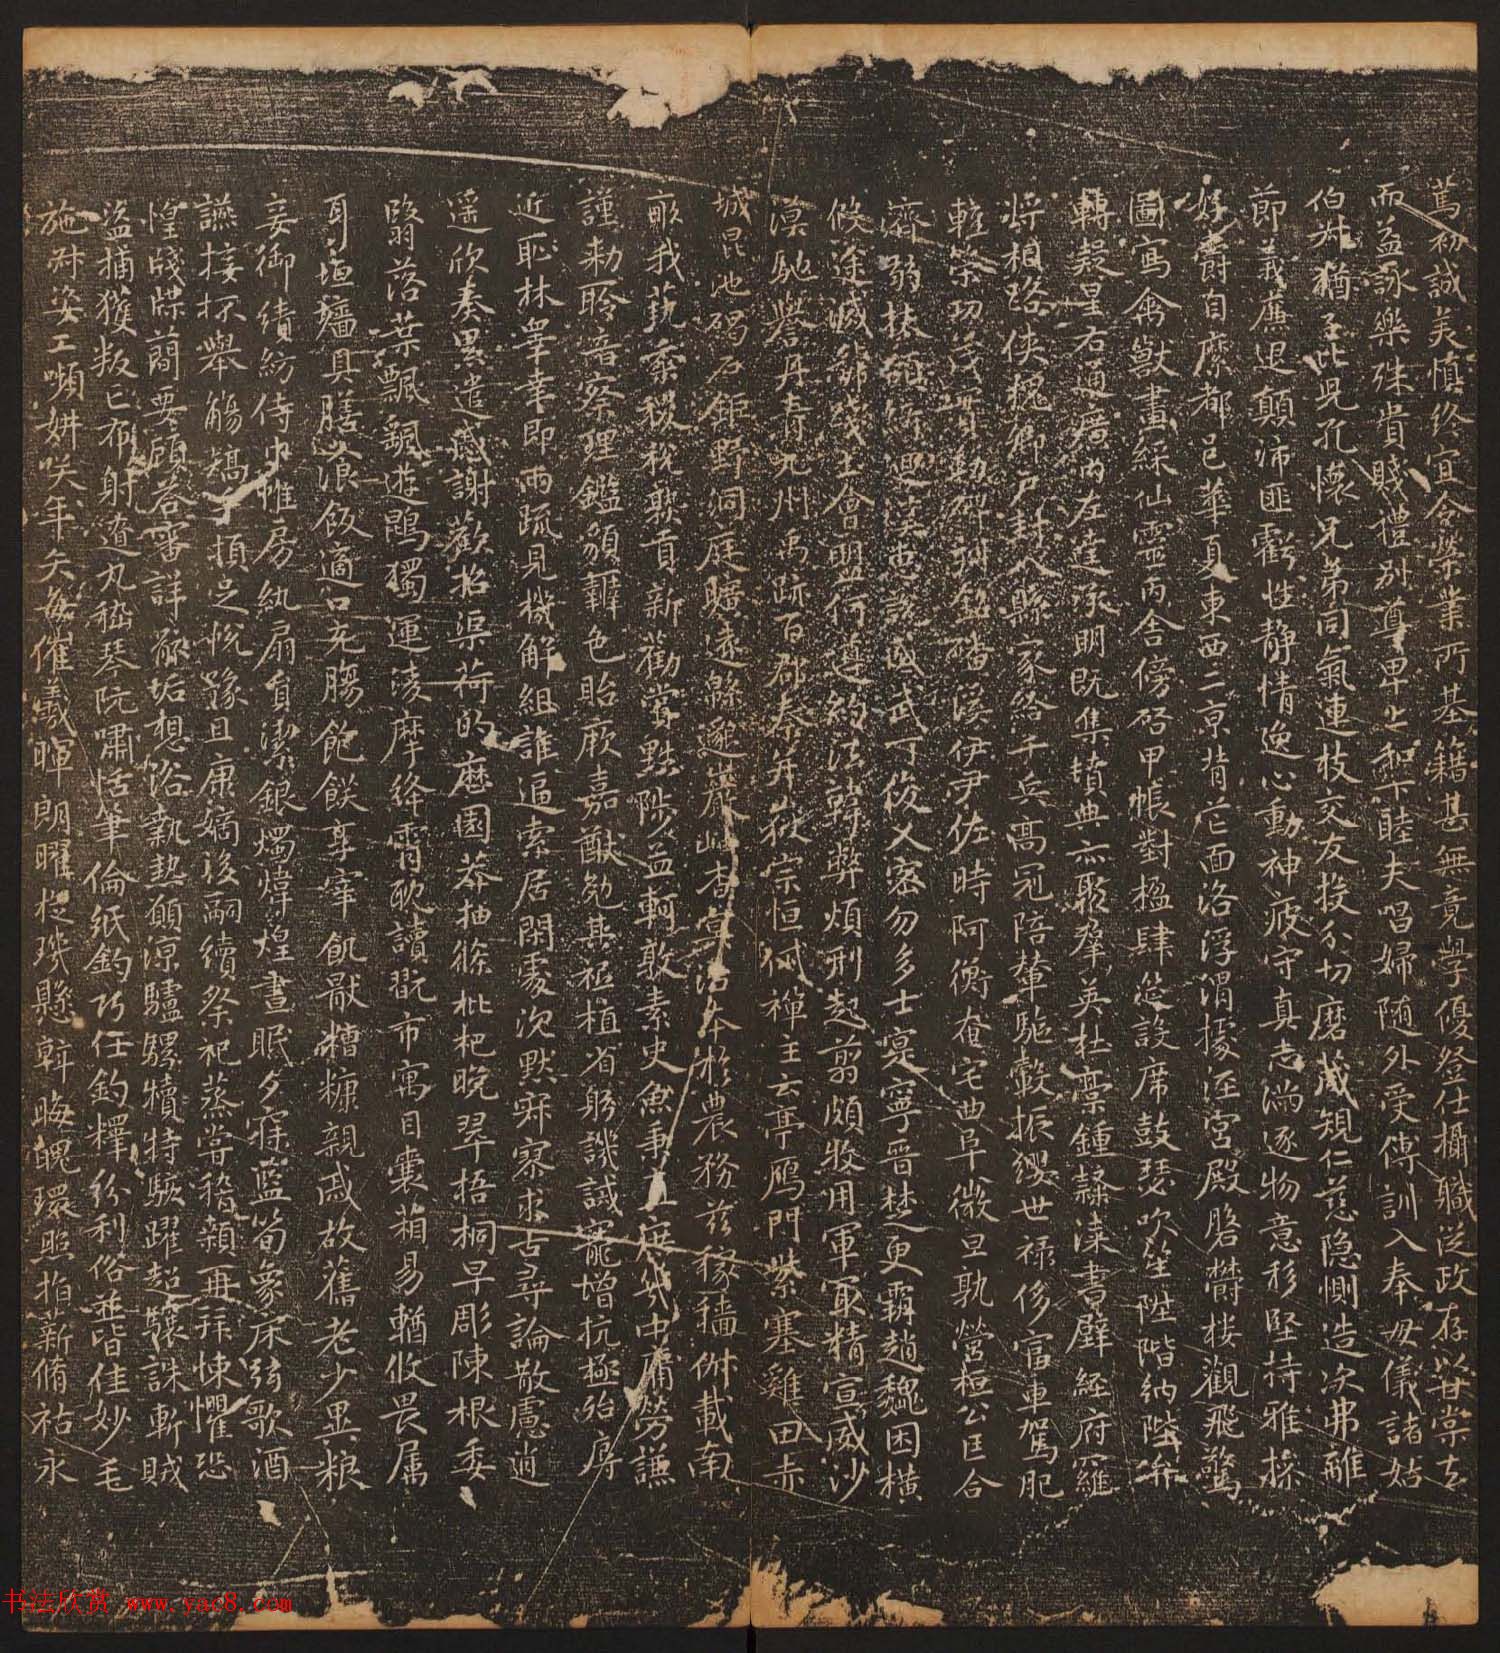 篤初誠美慎終宜令榮業所基籍甚無竟學優登仕攝職從政存以甘棠去
而益詠樂殊貴賤禮別尊卑上和下睦夫唱婦隨外受傅訓入奉母儀諸姑
伯叔猶子比兒孔懷兄弟同氣連枝交友投分切磨箴規仁慈隱惻造次弗離
節義廉退顛沛匪虧性靜情逸心動神疲守真志滿逐物意移堅持雅操
好爵自縻都邑華夏東西二京背芒面洛浮渭據涇宮殿盤鬱樓觀飛驚
圖寫禽獸畫綵仙靈丙舍傍啓甲帳對楹肆筵設席鼓瑟吹笙陞階納陛弁
轉疑星右通廣內左達承明既集墳典亦聚羣英杜稾鍾隸漆書壁經府羅
將相路俠槐卿戶封八縣家給千兵高冠陪輦驅轂振纓世祿侈富車駕肥
輕策功茂實勒碑刻銘磻溪伊尹佐時阿衡奄宅曲阜微旦孰營桓公匡合
濟弱扶傾綺迴漢惠說感武丁俊乂密勿多士寔寧晉楚更霸趙魏困橫
假途滅虢踐土會盟何遵約法韓弊煩刑起翦頗牧用軍最精宣威沙
漠馳譽丹青九州禹跡百郡秦并嶽宗恒岱禪主云亭鴈門紫塞雞田赤
城昆池碣石鉅野洞庭曠遠緜邈巖岫杳冥治本於農務茲稼穡俶載南
畝我藝黍稷稅熟貢新勸賞黜陟孟軻敦素史魚秉直庶幾中庸勞謙
謹勅聆音察理鑑貌辨色貽厥嘉猷勉其祗植省躬譏誡寵增抗極殆辱
近恥林皋幸即兩疏見機解組誰逼索居閑處沉默寂寥求古尋論散慮逍
遙欣奏累遣慼謝歡招渠荷的歷園莽抽條枇杷晚翠梧桐早彫陳根委
翳落葉飄颻遊鵾獨運凌摩絳霄耽讀翫市寓目囊箱易輶攸畏屬
耳垣牆具膳飡飯適口充腸飽飫享宰飢猒糟糠親戚故舊老少異粮
妾御績紡侍巾帷房紈扇員潔銀燭煒煌晝眠夕寐藍筍象床弦歌酒
讌接杯舉觴矯手頓足悅豫且康嫡後嗣續祭祀蒸嘗稽顙再拜悚懼恐
惶牋牒簡要顧答審詳骸垢想浴執熱願涼驢騾犢特駭躍超驤誅斬賊
盜捕獲叛亡布射遼丸嵇琴阮嘯恬筆倫紙鈞巧任釣釋紛利俗並皆佳妙毛
施淑姿工嚬妍咲年矢每催羲暉朗曜琁璣懸斡晦魄環照指薪脩祜永
书法欣赏 www.yac8.com